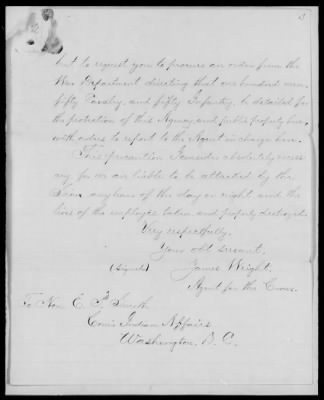 3
but to request you to procure an order from the
War Department directing that one hundred men
fifty Cavalry and fifty Infantry, to detailed for
the protection of this Agency and public property here
with orders to report to the Agent in charge here.
This precaution I consider absolutely necess
ary, for we are liable to be attacked by the
Sioux any hour of the day or night and the
lives of the employes taken and property destroyed.
Very respectfully,
Your obt servant,
(signed) James Wright,
Agent for the Crows.
To Hon E. P. Smith
Com'r Indian Affairs
Washington D. C.